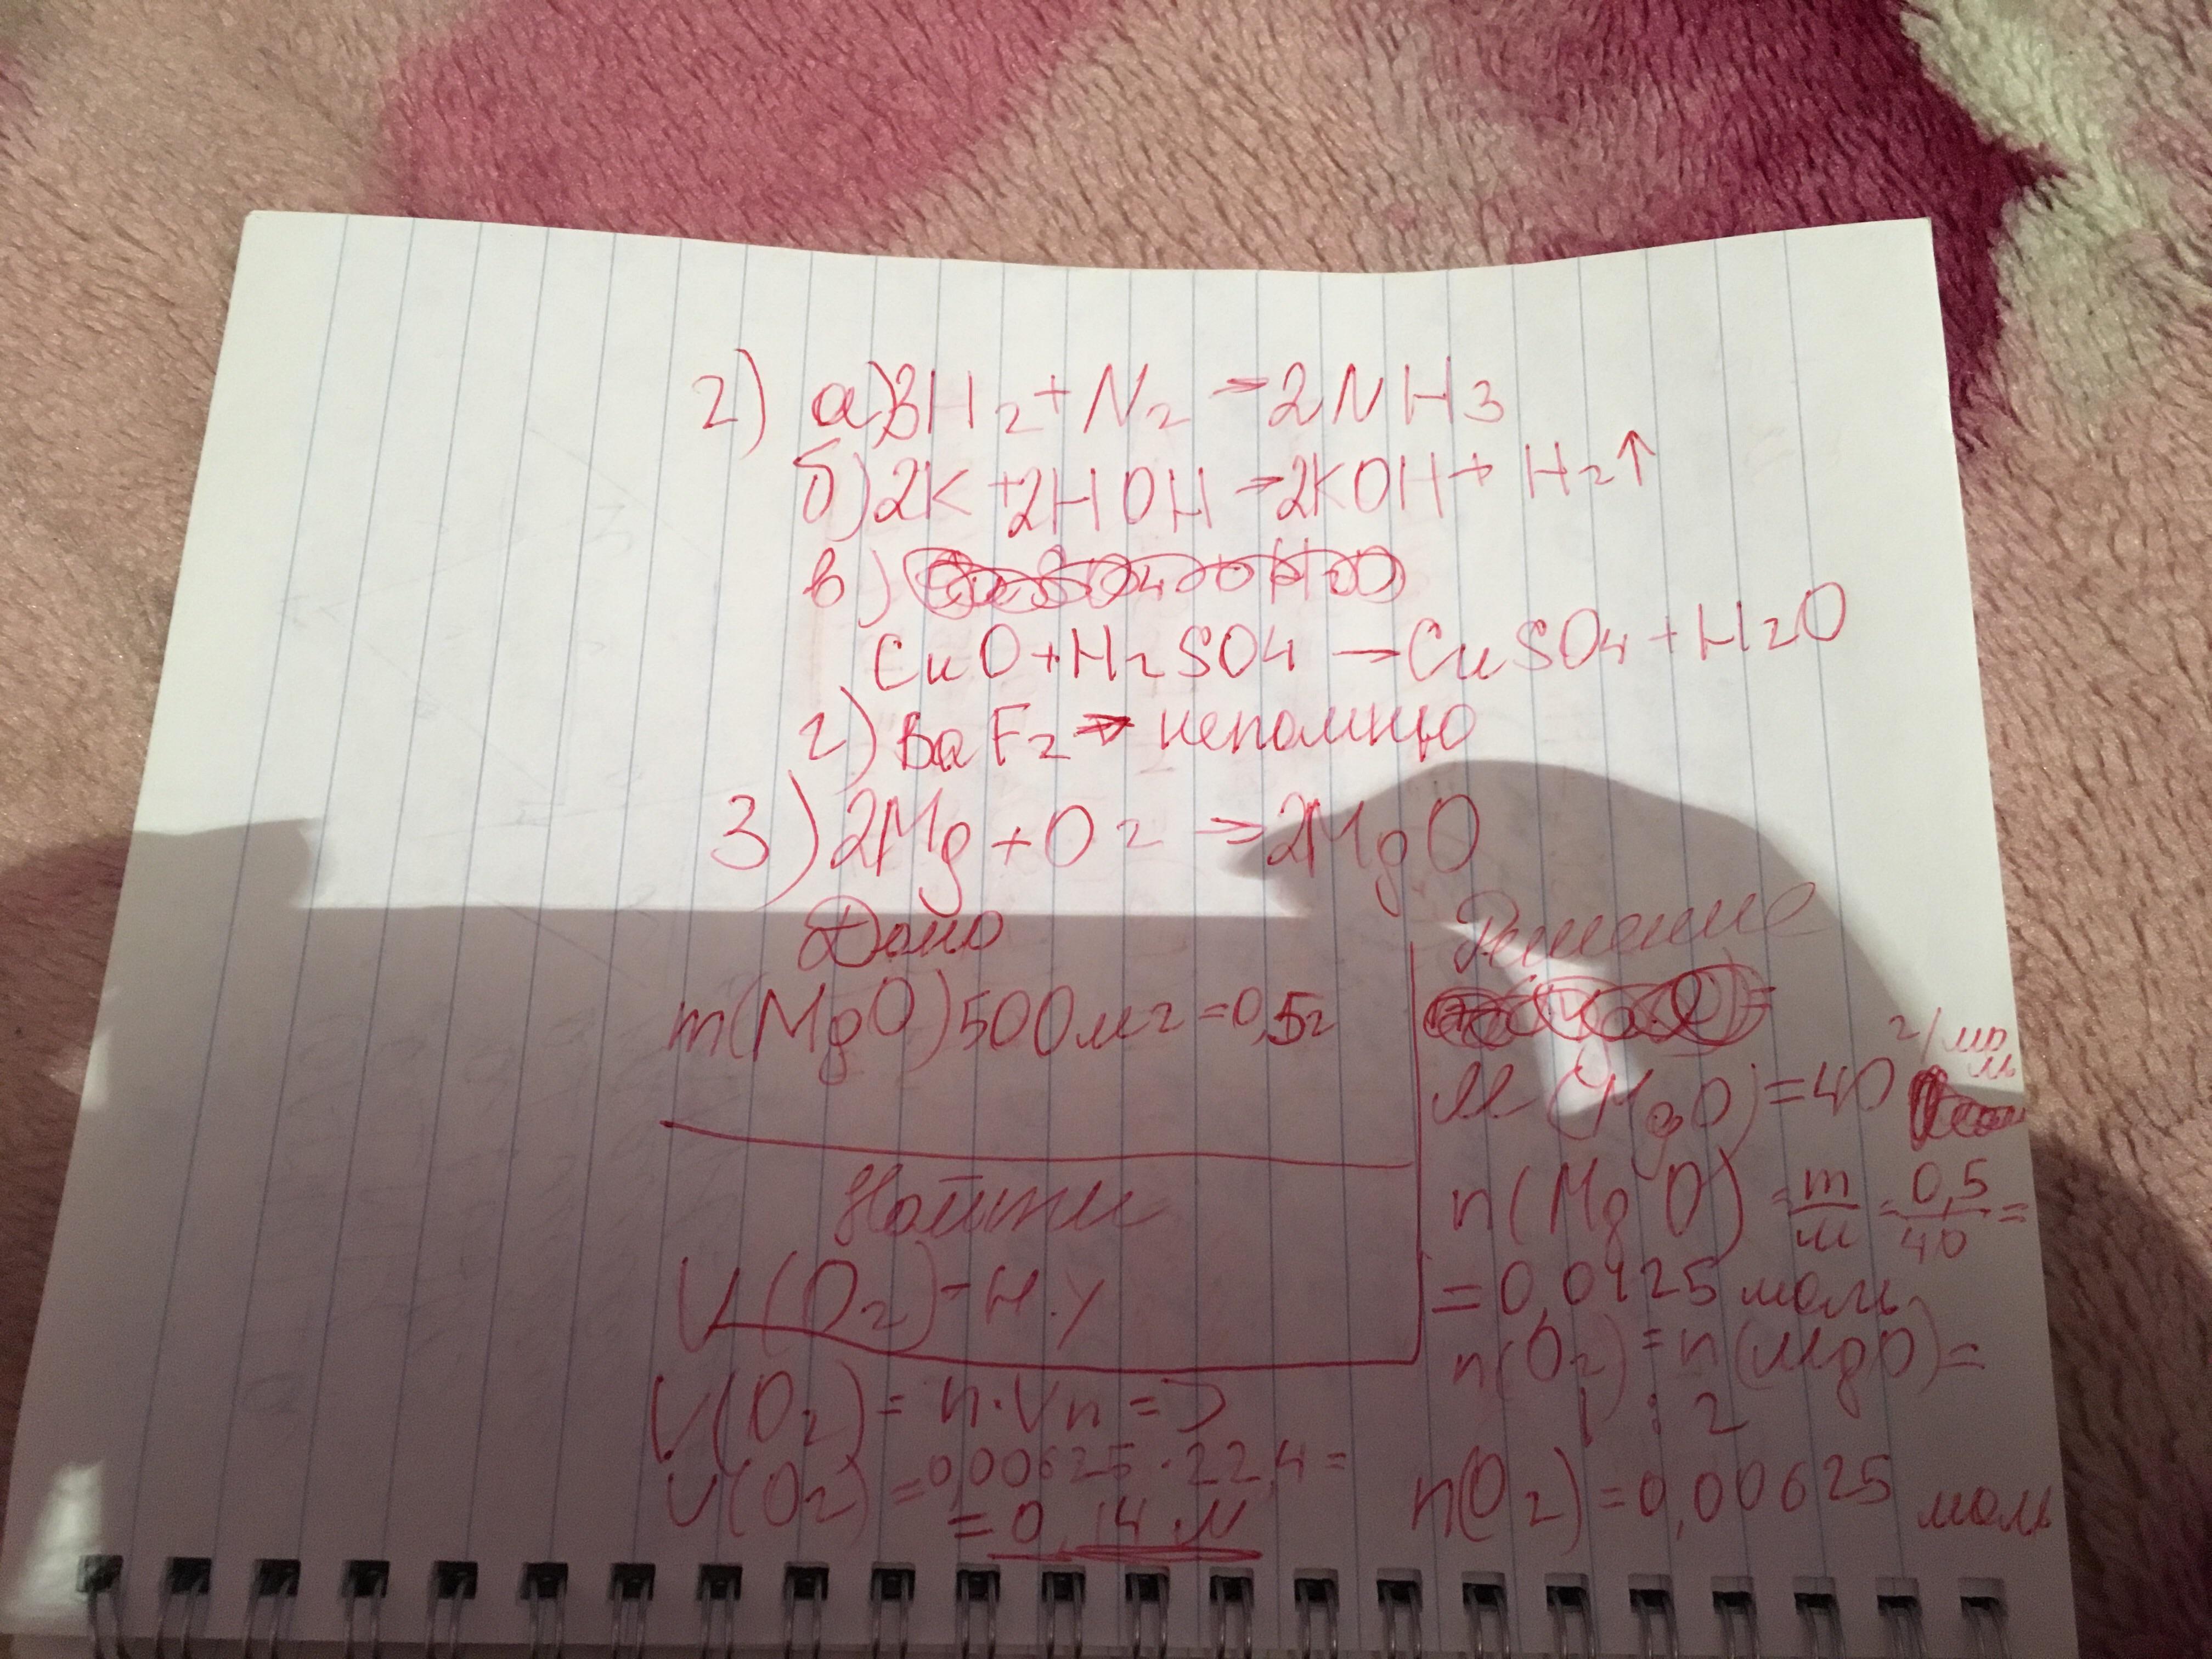 2) а) 3H2 + N2 → 2NH3
б) 2K + 2HOH → 2KOH + H2↑
в)
CuO + H2SO4 → CuSO4 + H2O
г) BaF2 → непомню
3) 2Mg + O2 → 2MgO
Дано
m(MgO) 500мг = 0,5г
Найти
V(O2) - н.у
V(O2) = n·Vn =>
V(O2) = 0,00625·22,4 =
= 0,14 л
Решение
M(MgO) = 40 г/моль
n(MgO) = m/M = 0,5/40 =
= 0,0125 моль
n(O2) = n(MgO) =
1 : 2
n(O2) = 0,00625 моль